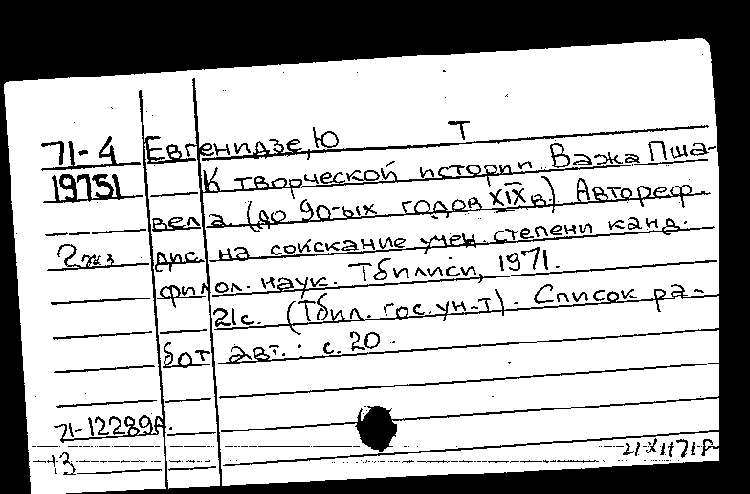 71-4 Евгенидзе, Ю Т
19751 К творческой истории Важа Пша-
вела (до 90-ых годов XIX в.) Автореф.
2 экз дис. на соискание учен. степени канд.
филол. наук. Тбилиси, 1971.
21с. (Тбил. гос. ун-т). Список ра-
бот авт.: с. 20.
71-12289А.
13